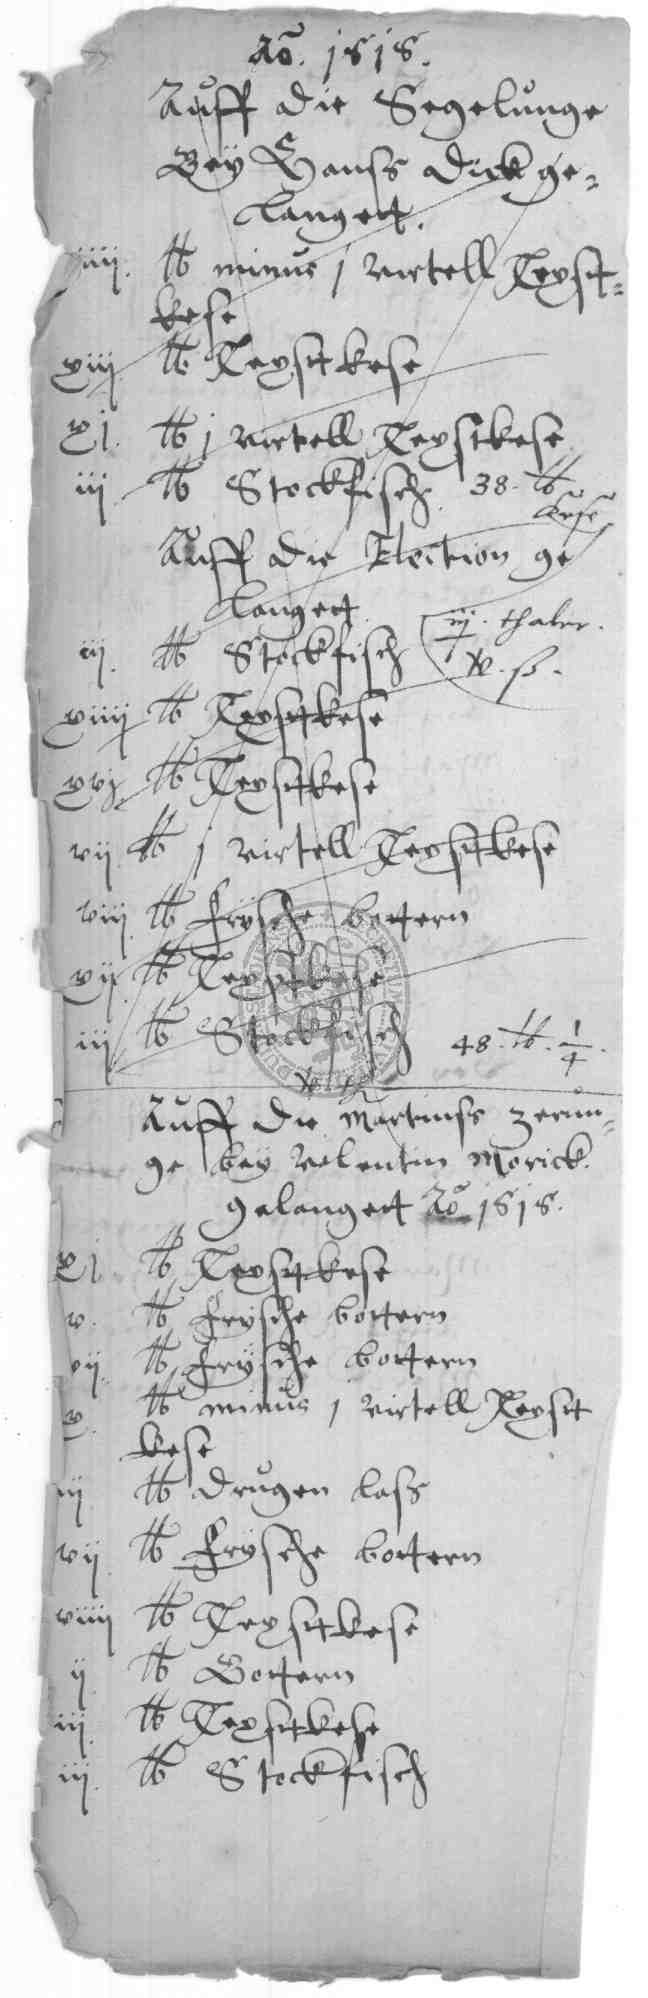 Ao. 1818.
Auff die Segelunge
Beÿ Hanss Dick ge-
langett.
iiij. lb minus j virtell Reyst-
kese
viij lb Reystkese
xj. lb j virtell Reystkese
iij lb Stockfisch. 38. lb
kese
Auff die Election ge
langett.
iij. thaler.
ij. lb Stockfisch
viiij lb Reystkese
xvj lb Reystkese
vij lb j virtell Reystkese
viij lb frÿsche bottern
vij lb Reystkese
iij lb Stockfisch 48. lb. 1/4.
Auff die Martinss zerun-
ge beÿ Valentin Morick.
gelangett Ao 1818.
xj lb Reystkese
v. lb frÿsche bottern
vij lb frÿsche bottern
v. lb minus j virtell Reyst
kese
iij lb drugen lass
vij lb frÿsche bottern
viiij lb Reystkese
ij lb Bottern
iij lb Reystkese
iij. lb Stockfisch